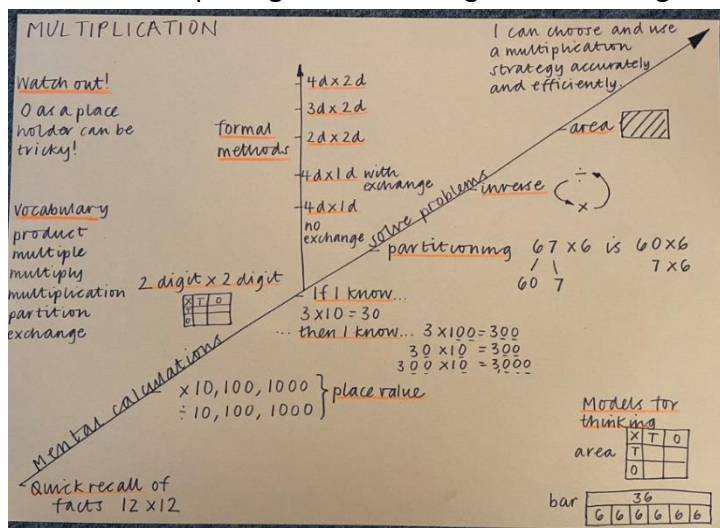 MULTIPLICATION
I can choose and use
a multiplication
strategy accurately
and efficiently.
Watch out!
0 as a place
holder can be
tricky!
Vocabulary
product
multiple
multiply
multiplication
partition
exchange
formal
methods
4d x 2d
3d x 2d
2d x 2d
4d x 1d with
exchange
4d x 1d
no
exchange
solve problems
area
inverse
÷
x
partitioning
67 x 6 is 60 x 6
7 x 6
60 7
2 digit x 2 digit
X T O
T
O
If I know...
3 x 10 = 30
... then I know... 3 x 100 = 300
30 x 10 = 300
300 x 10 = 3,000
Mental calculations
x 10, 100, 1000
÷ 10, 100, 1000
} place value
Quick recall of
facts 12 x 12
Models for
thinking
area
X T O
T
O
bar
36
6 6 6 6 6 6